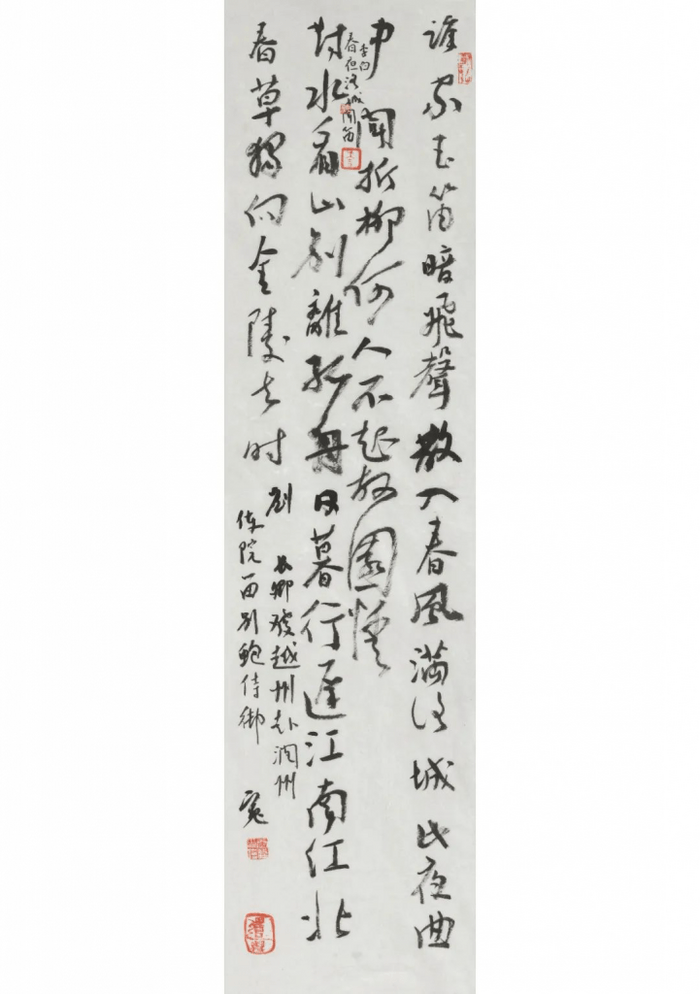 誰家玉笛暗飛聲散入春風滿洛城此夜曲
中聞折柳何人不起故園情
李白
春夜洛城聞笛
對水看山別離孤舟日暮行遲江南江北
春草獨向金陵去时
劉長卿發越州赴潤州
使院留別鮑侍御